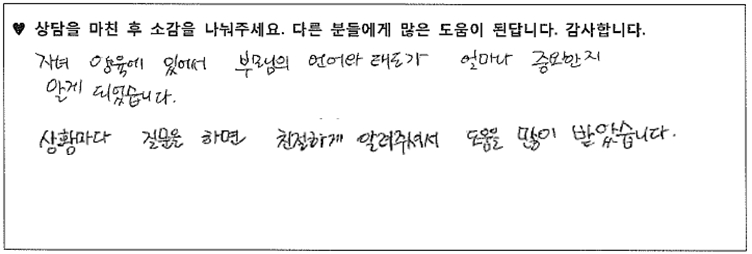 ♥ 상담을 마친 후 소감을 나눠주세요. 다른 분들에게 많은 도움이 된답니다. 감사합니다.
자녀 양육에 있어서 부모님의 언어와 태도가 얼마나 중요한지
알게 되었습니다.
상황마다 질문을 하면 친절하게 알려주셔서 도움을 많이 받았습니다.